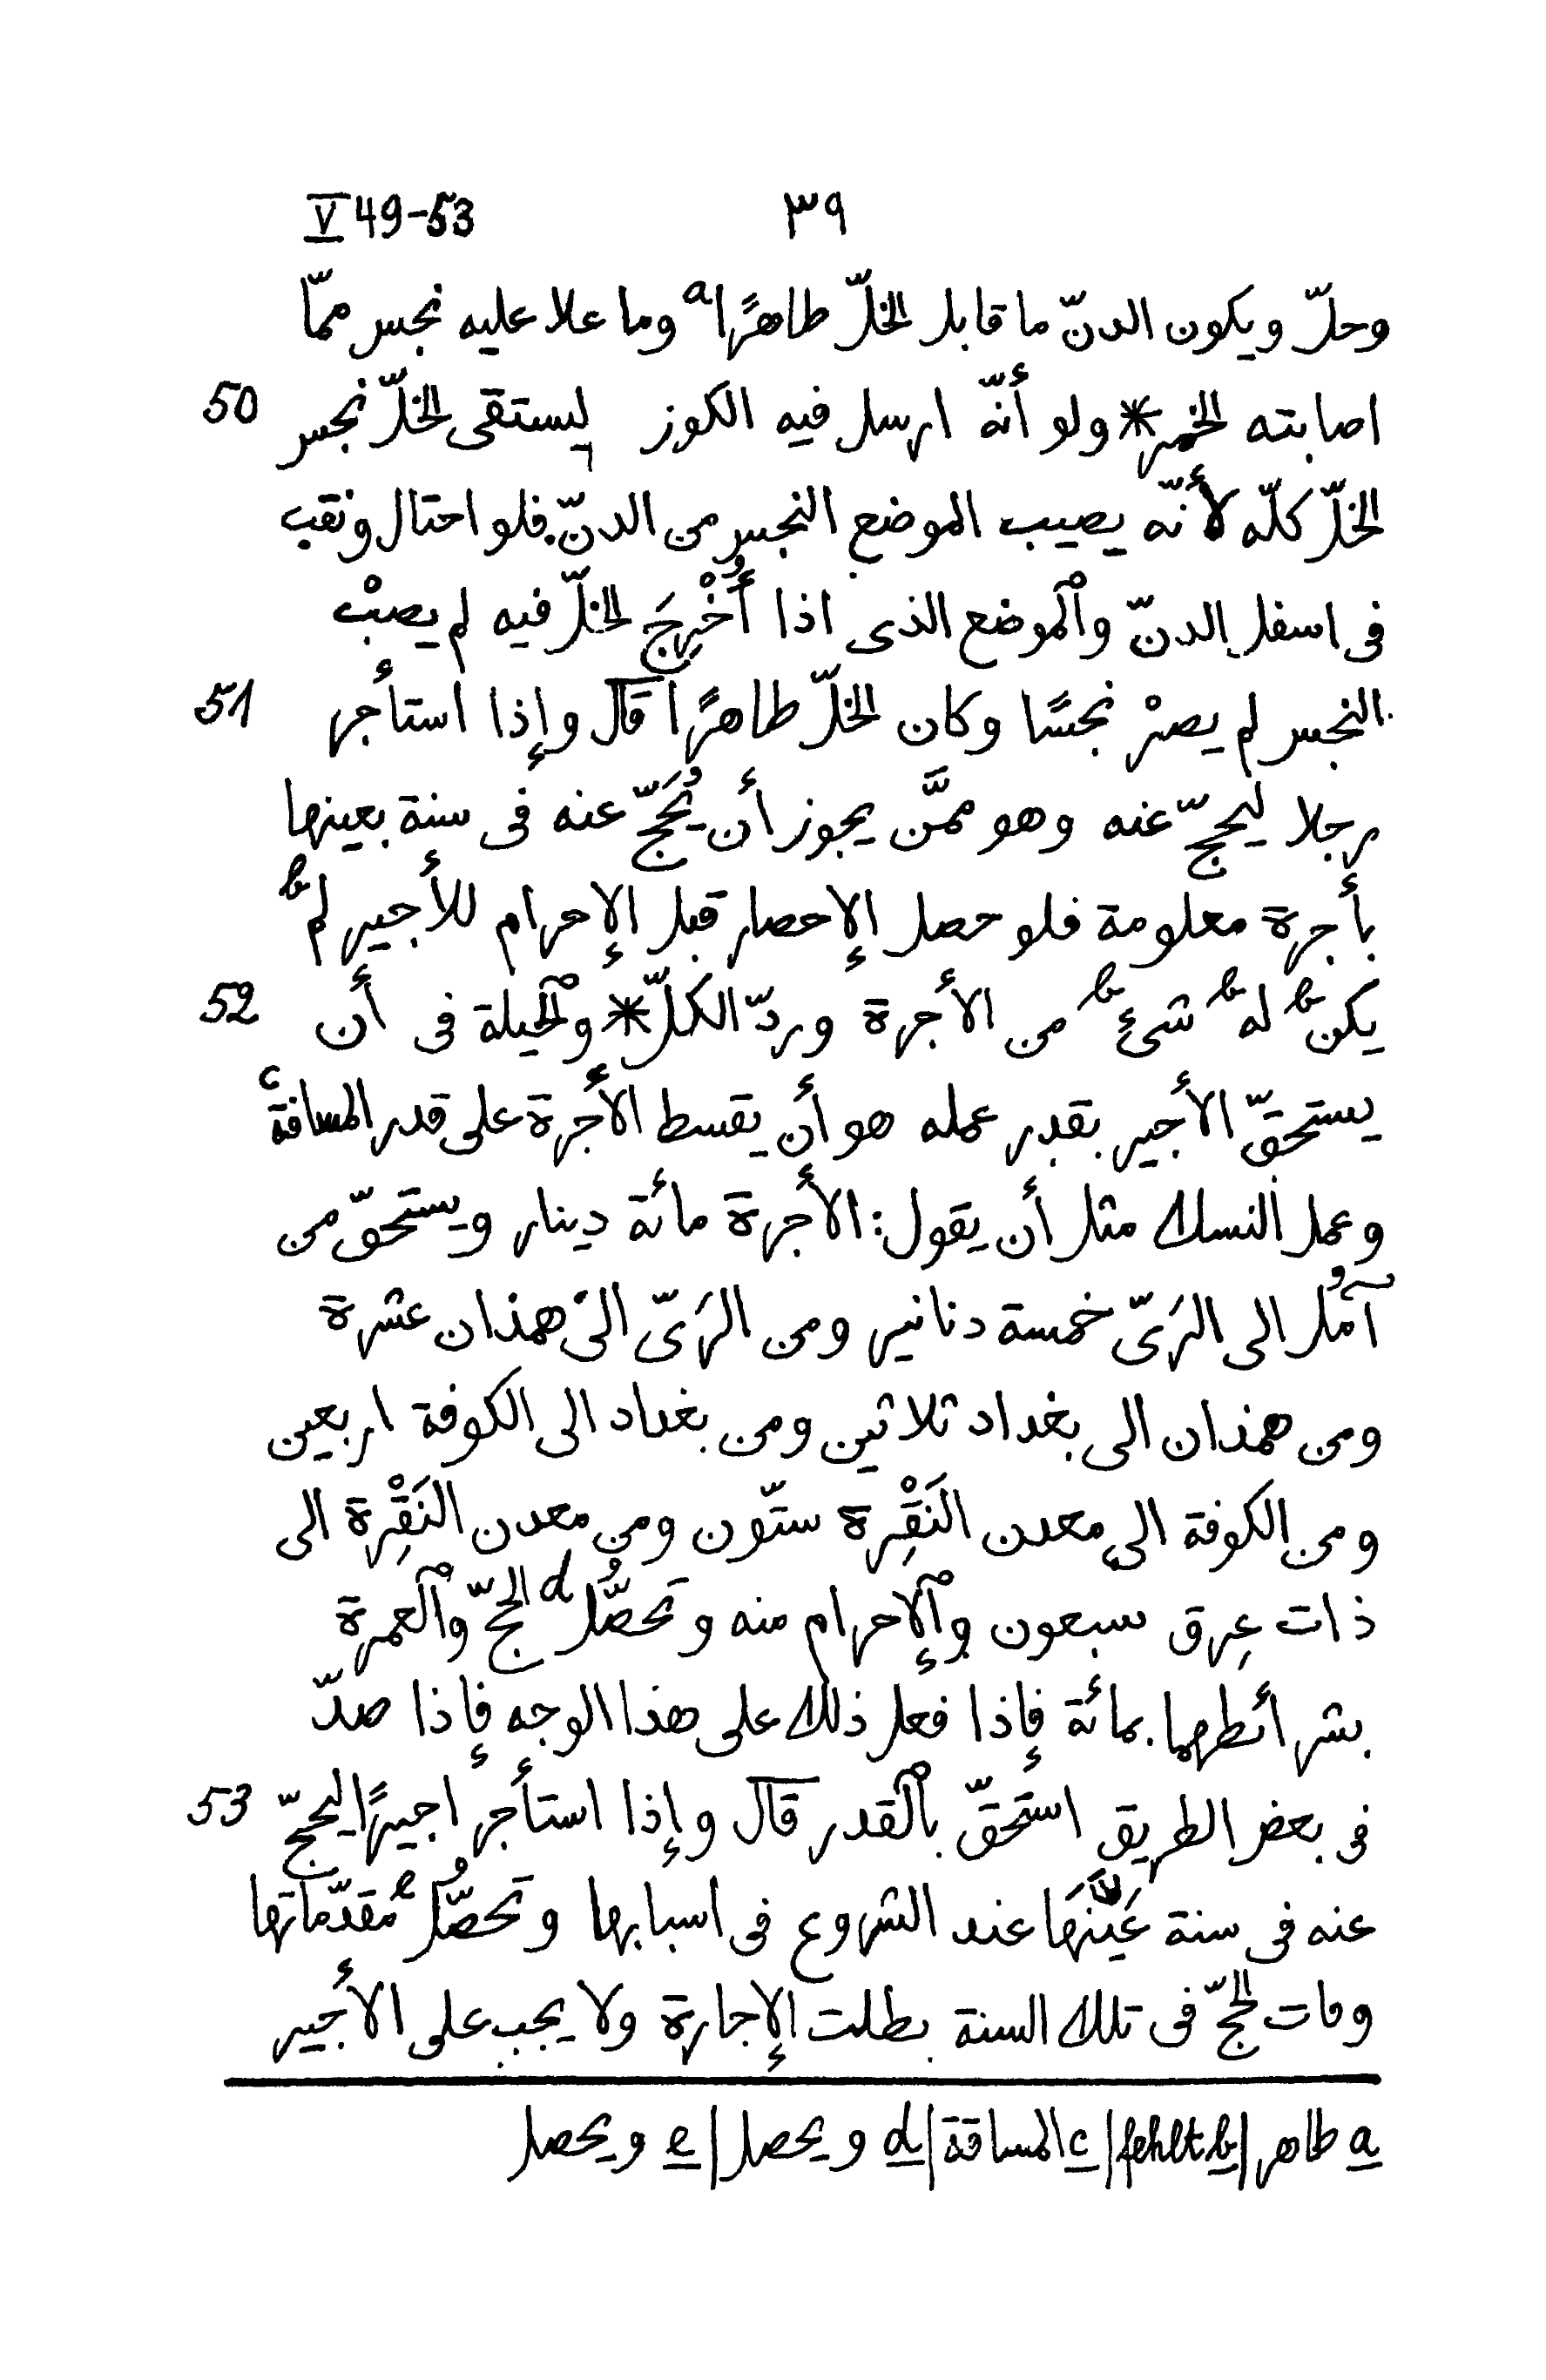 V 49-53 ٣٩
وحلّ ويكون الدنّ ما قابل الخلّ طاهرًا a وما علا عليه نجس ممّا
50 اصابته الخمر * ولو أنّه ارسل فيه الكوز ليستقى الخلّ نجس
الخلّ كلّه لأنّه يصيب الموضع النجس من الدنّ. فلو احتال ونقب
فى اسفل الدنّ وٱلموضع الذى اذا أُخْرِجَ الخلّ فيه لم يصبْ
51 النجس لم يصرْ نجسًا وكان الخلّ طاهرًا قال وإذا استأجر
رجلا ليحجّ عنه وهو ممَّن يجوز أن يُحَجّ عنه فى سنة بعينها
بأجرة معلومة فلو حصل الإحصار قبل الإحرام للأجير لم b
52 يكن b له b شئ b من الأجرة وردّ الكلّ * وٱلحيلة فى أن
يستحقّ الأجير بقدر عمله هو أن يقسط الأجرة على قدر المسافة c
وعمل النسك مثل أن يقول: الأجرة مائة دينار ويستحقّ من
آمُل الى الرَىّ خمسة دنانير ومن الرَىّ الى همذان عشرة
ومن همذان الى بغداد ثلاثين ومن بغداد الى الكوفة اربعين
ومن الكوفة الى معدن النَقْرِة ستّون ومن معدن النَقْرِة الى
ذات عِرق سبعون وٱلإحرام منه وتحصُّل d الحجّ وٱلعمرة
بشرائطهما بمائة فإذا فعل ذلك على هذا الوجه فإذا صدّ
53 فى بعض الطريق استحقّ بٱلقدر قال وإذا استأجر اجيرًا ليحجّ
عنه فى سنة عَيَّنَهَا عند الشروع فى اسبابها وتحصُّل e مُقدّماتها
وفات الحجّ فى تلك السنة بطلت الإجارة ولا يجب على الأجير
a طاهر | b fehlt | c المساقة | d ويحصل | e ويحصل